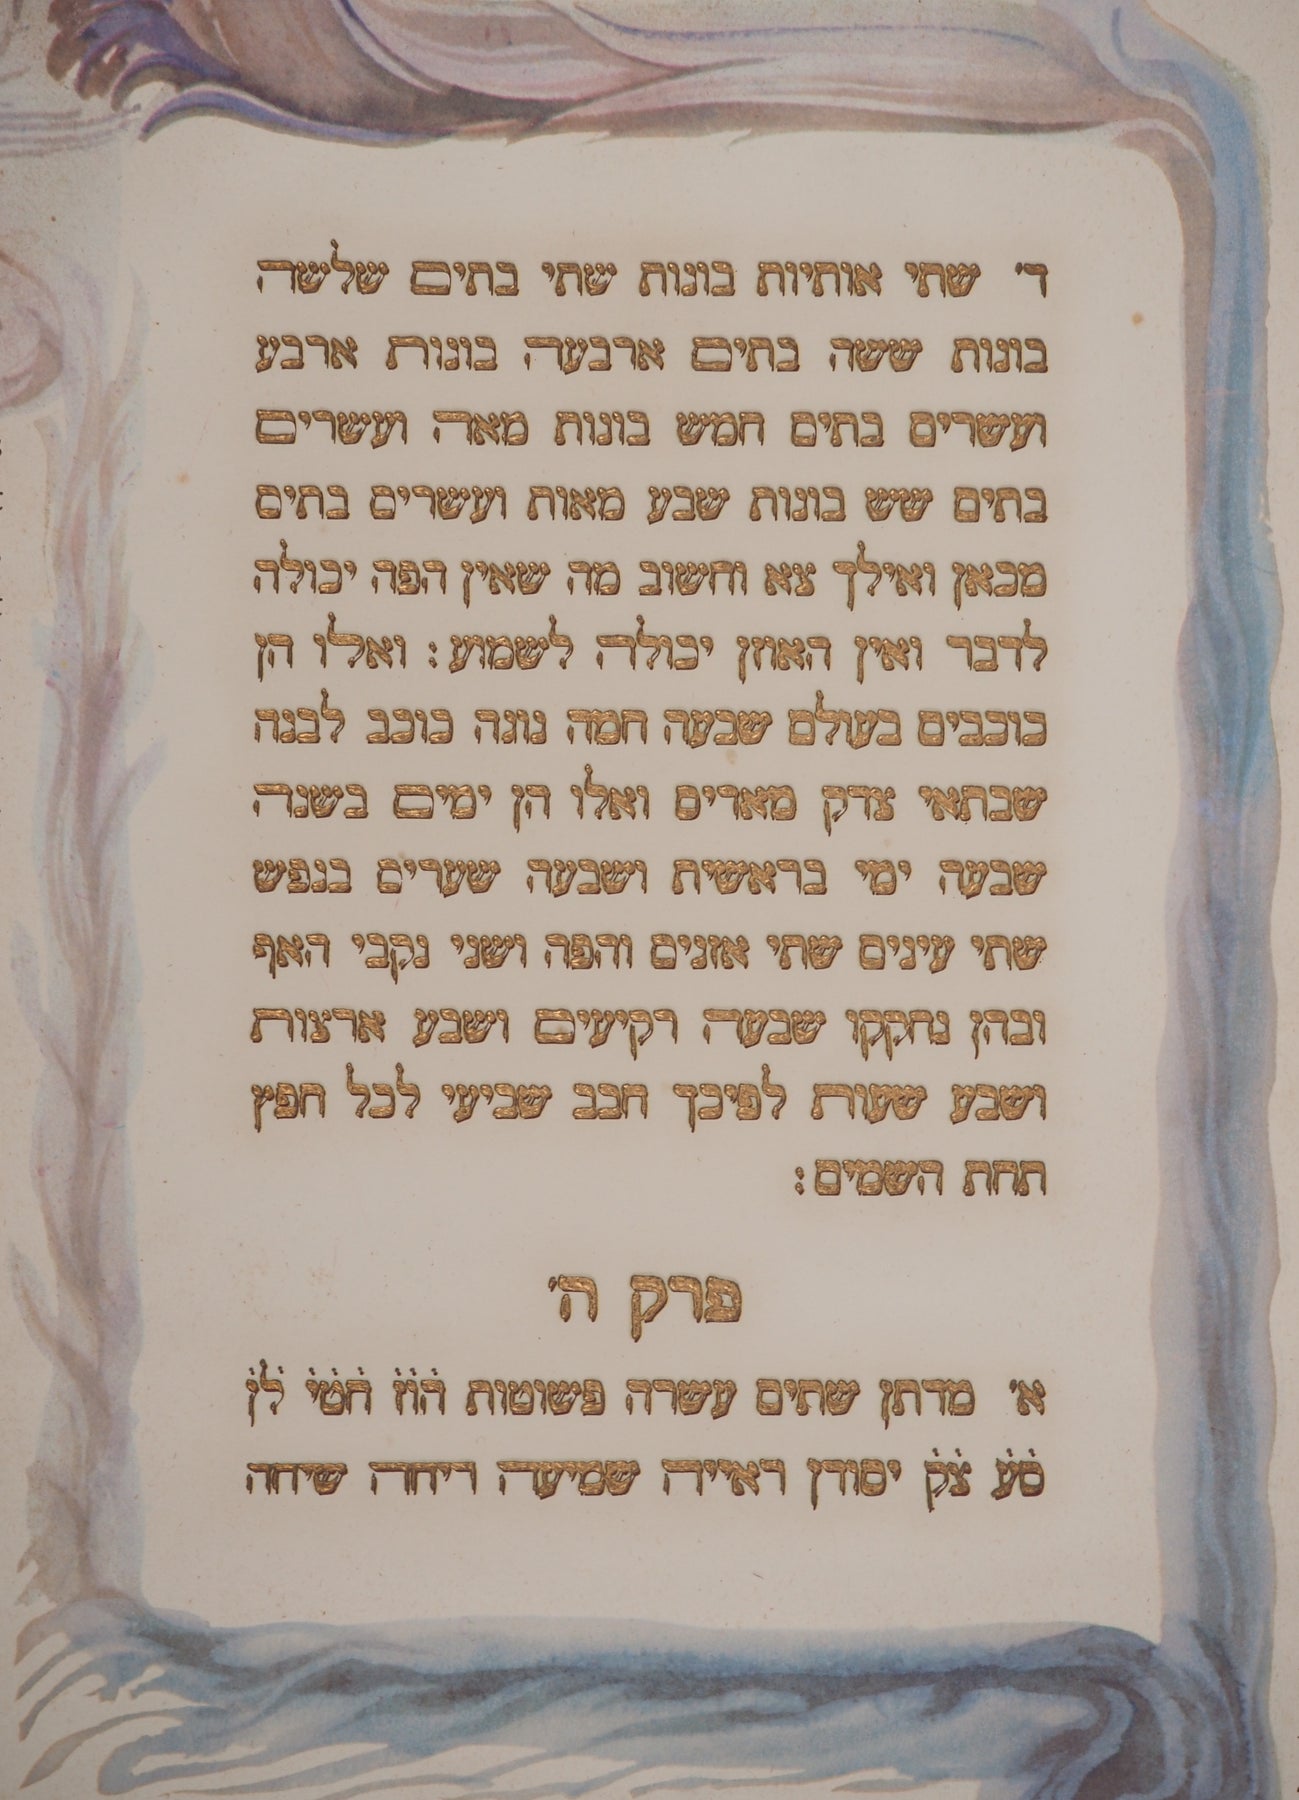 ד׳ שתי אותיות בונות שתי בתים שלשה
בונות ששה בתים ארבעה בונות ארבע
ועשרים בתים חמש בונות מאה ועשרים
בתים שש בונות שבע מאות ועשרים בתים
מכאן ואילך צא וחשוב מה שאין הפה יכולה
לדבר ואין האוזן יכולה לשמוע: ואלו הן
כוכבים בעולם שבעה חמה נוגה כוכב לבנה
שבתאי צדק מאדים ואלו הן ימים בשנה
שבעה ימי בראשית ושבעה שערים בנפש
שתי עינים שתי אזנים והפה ושני נקבי האף
ובהן נחקקו שבעה רקיעים ושבע ארצות
ושבע שעות לפיכך חבב שביעי לכל חפץ
תחת השמים:
פרק ה׳
א׳ מדתן שתים עשרה פשוטות ה̇ו̇ז̇ ח̇ט̇י̇ ל̇ן̇
ס̇ע̇ צ̇ק̇ יסודן ראייה שמיעה ריחה שיחה